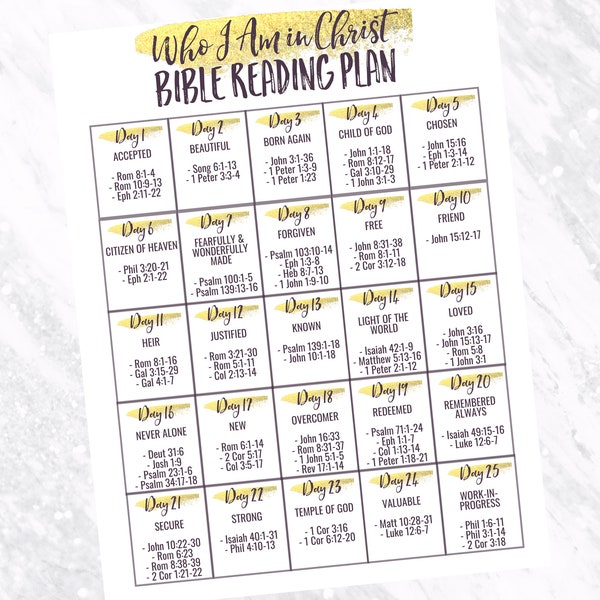 Who I Am in Christ
BIBLE READING PLAN
Day 1
ACCEPTED
- Rom 8:1-4
- Rom 10:9-13
- Eph 2:11-22
Day 2
BEAUTIFUL
- Song 6:1-13
- 1 Peter 3:3-4
Day 3
BORN AGAIN
- John 3:1-36
- 1 Peter 1:3-9
- 1 Peter 1:23
Day 4
CHILD OF GOD
- John 1:1-18
- Rom 8:12-17
- Gal 3:10-29
- 1 John 3:1-3
Day 5
CHOSEN
- John 15:16
- Eph 1:3-14
- 1 Peter 2:1-12
Day 6
CITIZEN OF HEAVEN
- Phil 3:20-21
- Eph 2:1-22
Day 7
FEARFULLY &
WONDERFULLY
MADE
- Psalm 100:1-5
- Psalm 139:13-16
Day 8
FORGIVEN
- Psalm 103:10-14
- Eph 1:3-8
- Heb 8:7-13
- 1 John 1:9-10
Day 9
FREE
- John 8:31-38
- Rom 8:1-11
- 2 Cor 3:12-18
Day 10
FRIEND
- John 15:12-17
Day 11
HEIR
- Rom 8:1-16
- Gal 3:15-29
- Gal 4:1-7
Day 12
JUSTIFIED
- Rom 3:21-30
- Rom 5:1-11
- Col 2:13-14
Day 13
KNOWN
- Psalm 139:1-18
- John 10:1-18
Day 14
LIGHT OF THE
WORLD
- Isaiah 42:1-9
- Matthew 5:13-16
- 1 Peter 2:1-12
Day 15
LOVED
- John 3:16
- John 15:13-17
- Rom 5:8
- 1 John 3:1
Day 16
NEVER ALONE
- Deut 31:6
- Josh 1:9
- Psalm 23:1-6
- Psalm 34:17-18
Day 17
NEW
- Rom 6:1-14
- 2 Cor 5:17
- Col 3:5-17
Day 18
OVERCOMER
- John 16:33
- Rom 8:31-37
- 1 John 5:1-5
- Rev 17:1-14
Day 19
REDEEMED
- Psalm 71:1-24
- Eph 1:1-7
- Col 1:13-14
- 1 Peter 1:18-21
Day 20
REMEMBERED
ALWAYS
- Isaiah 49:15-16
- Luke 12:6-7
Day 21
SECURE
- John 10:22-30
- Rom 6:23
- Rom 8:38-39
- 2 Cor 1:21-22
Day 22
STRONG
- Isaiah 40:1-31
- Phil 4:10-13
Day 23
TEMPLE OF GOD
- 1 Cor 3:16
- 1 Cor 6:12-20
Day 24
VALUABLE
- Matt 10:28-31
- Luke 12:6-7
Day 25
WORK-IN-
PROGRESS
- Phil 1:6-11
- Phil 3:1-14
- 2 Cor 3:18